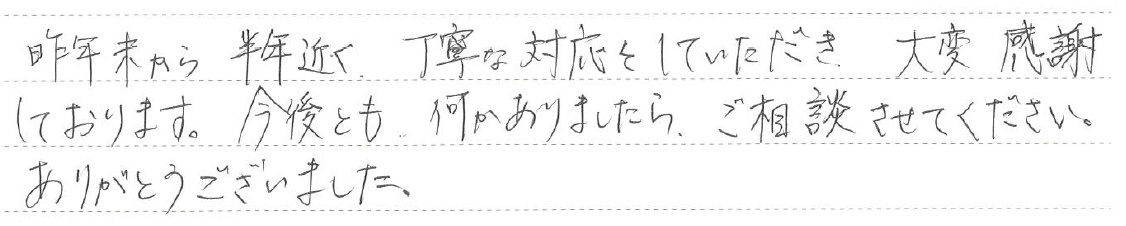 昨年末から 半年近く、丁寧な対応をしていただき 大変 感謝
しております。今後とも、何かありましたら、ご相談させてください。
ありがとうございました。